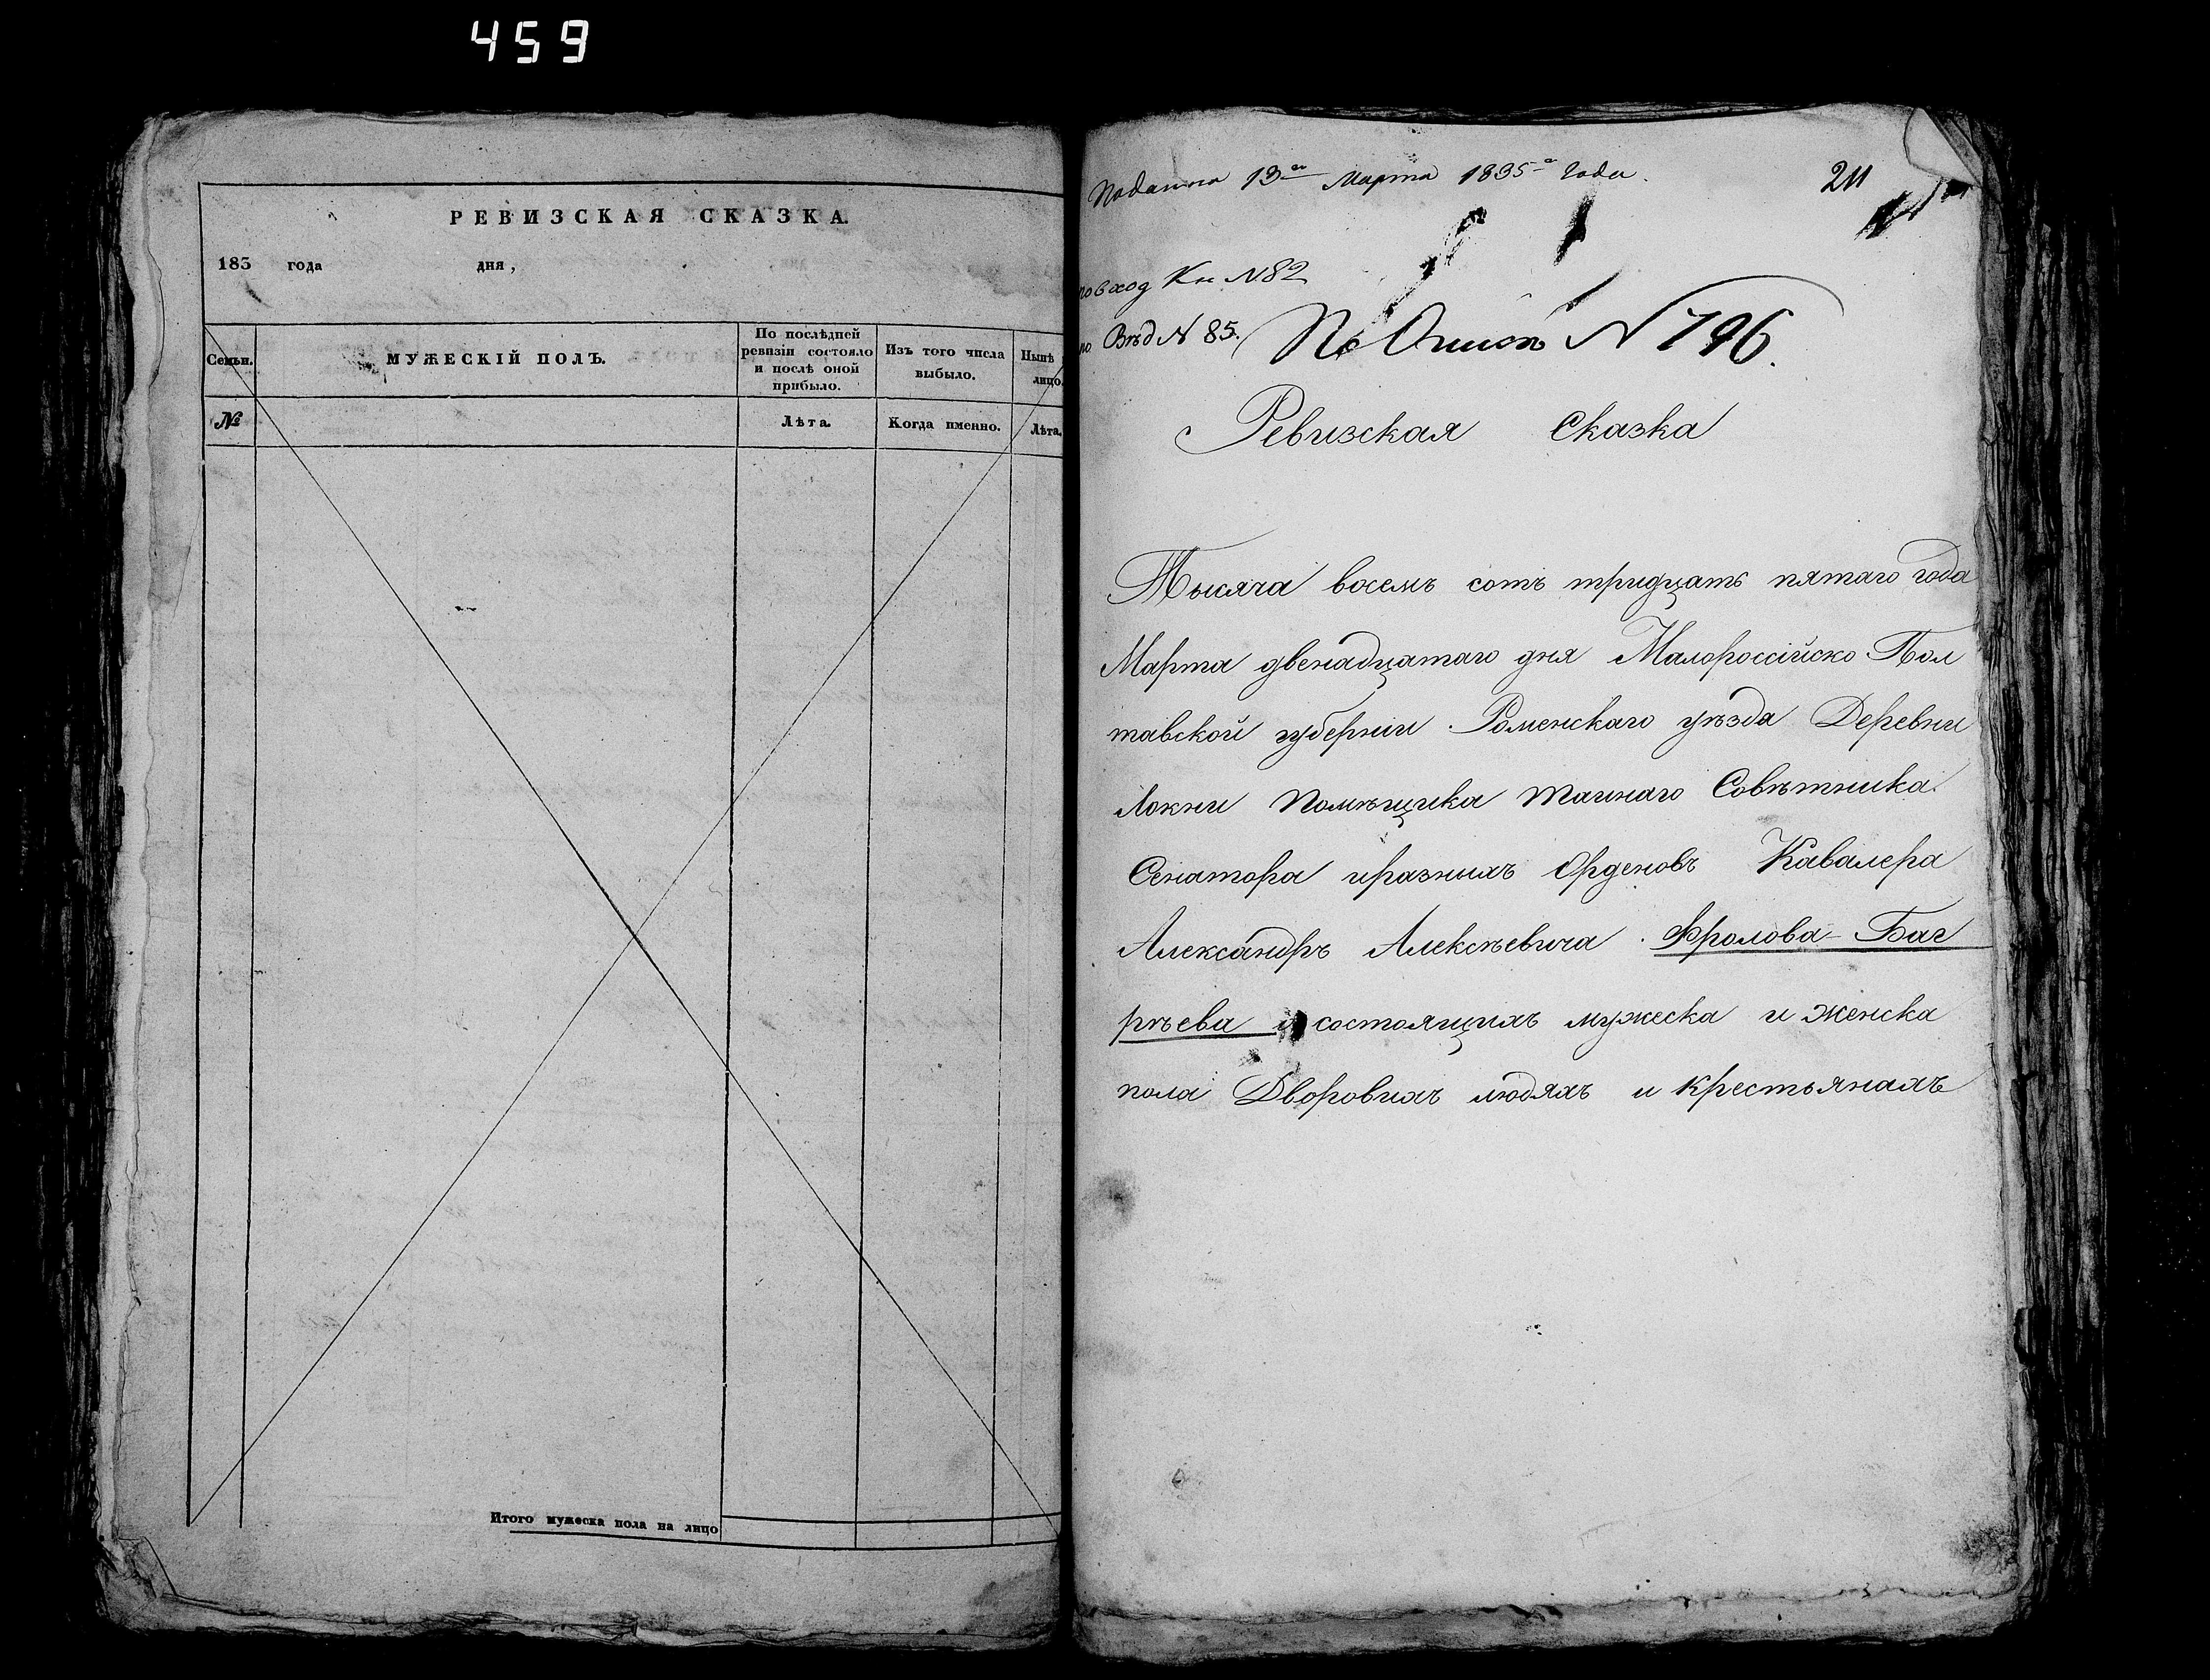 459
РЕВИЗСКАЯ СКАЗКА.
183 года дня,
Семьи.
МУЖЕСКІЙ ПОЛЪ.
По послѣдней
ревизіи состояло
и послѣ оной
прибыло.
Изъ того числа
выбыло.
Нынѣ
лицо.
№
Лѣта.
Когда именно.
Лѣта.
Итого мужеска пола на лицо
Поданна 13го Марта 1835го Года.
211
по вход Кн N 82
по Вѣд N 85.
По Описѣ N 196.
Ревизская Сказка
Тысяча восемъ сотъ тридцать пятаго года
Марта двенадцатаго дня Малороссійско Пол
тавской губерніи Роменскаго уѣзда Деревни
Локни Помѣщика Таинаго Совѣтника
Сенатора иразныхъ Орденовъ Кавалера
Александръ Алексѣевича Фролова-Баг
рѣева о состоящихъ мужеска и женска
пола Дворовихъ людяхъ и крестьянахъ